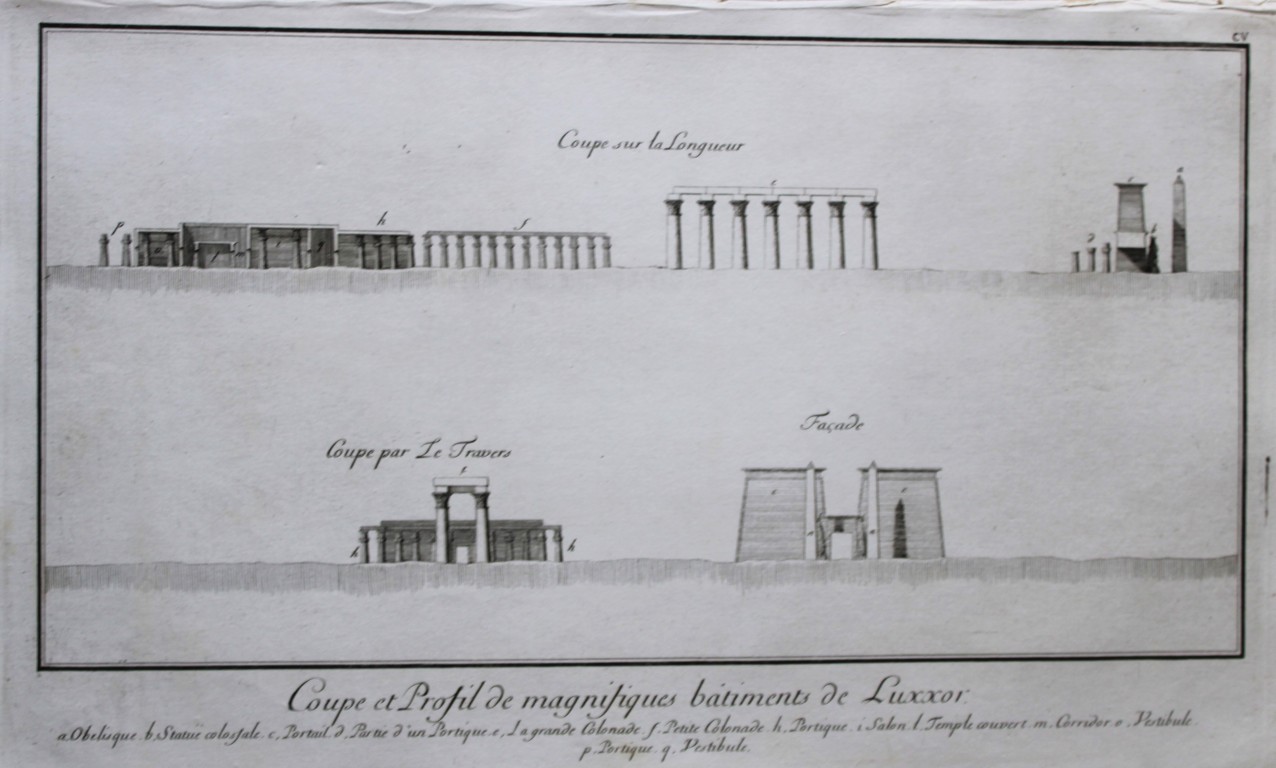 CV
Coupe sur la Longueur
p h f e c a
d b
Coupe par Le Travers
Façade
h h
c c
a a
Coupe et Profil de magnifiques bâtiments de Luxxor.
a, Obelisque. b, Statüe colossale. c, Portail. d, Partie d'un Portique. e, La grande Colonade. f, Petite Colonade. h, Portique. i Salon. l, Temple couvert. m. Corridor. o, Vestibule.
p, Portique. q, Vestibule.